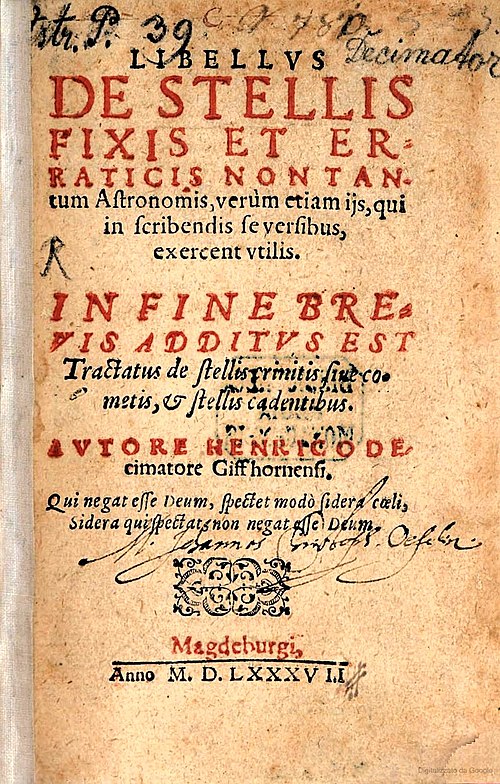 str. P. 39
Decimator
LIBELLVS
DE STELLIS
FIXIS ET ER-
RATICIS NON TAN-
tum Astronomis, verùm etiam ijs, qui
in scribendis se versibus,
exercent vtilis.
R
IN FINE BRE-
VIS ADDITVS EST
Tractatus de stellis crinitis, siue co-
metis, & stellis cadentibus.
AVTORE HENRICO DE-
cimatore Giffhornensi.
Qui negat esse Deum, spectet modò sidera cœli,
Sidera qui spectat, non negat esse Deum.
Magdeburgi,
Anno M. D. LXXXVII
Digitalizzato da Google